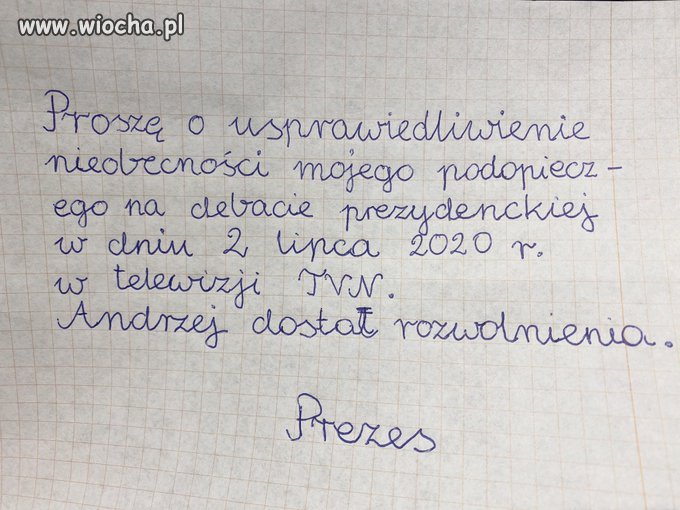 www.wiocha.pl
Proszę o usprawiedliwienie
nieobecności mojego podopiecz-
ego na debacie prezydenckiej
w dniu 2 lipca 2020 r.
w telewizji TVN.
Andrzej dostał rozwolnienia.
Prezes